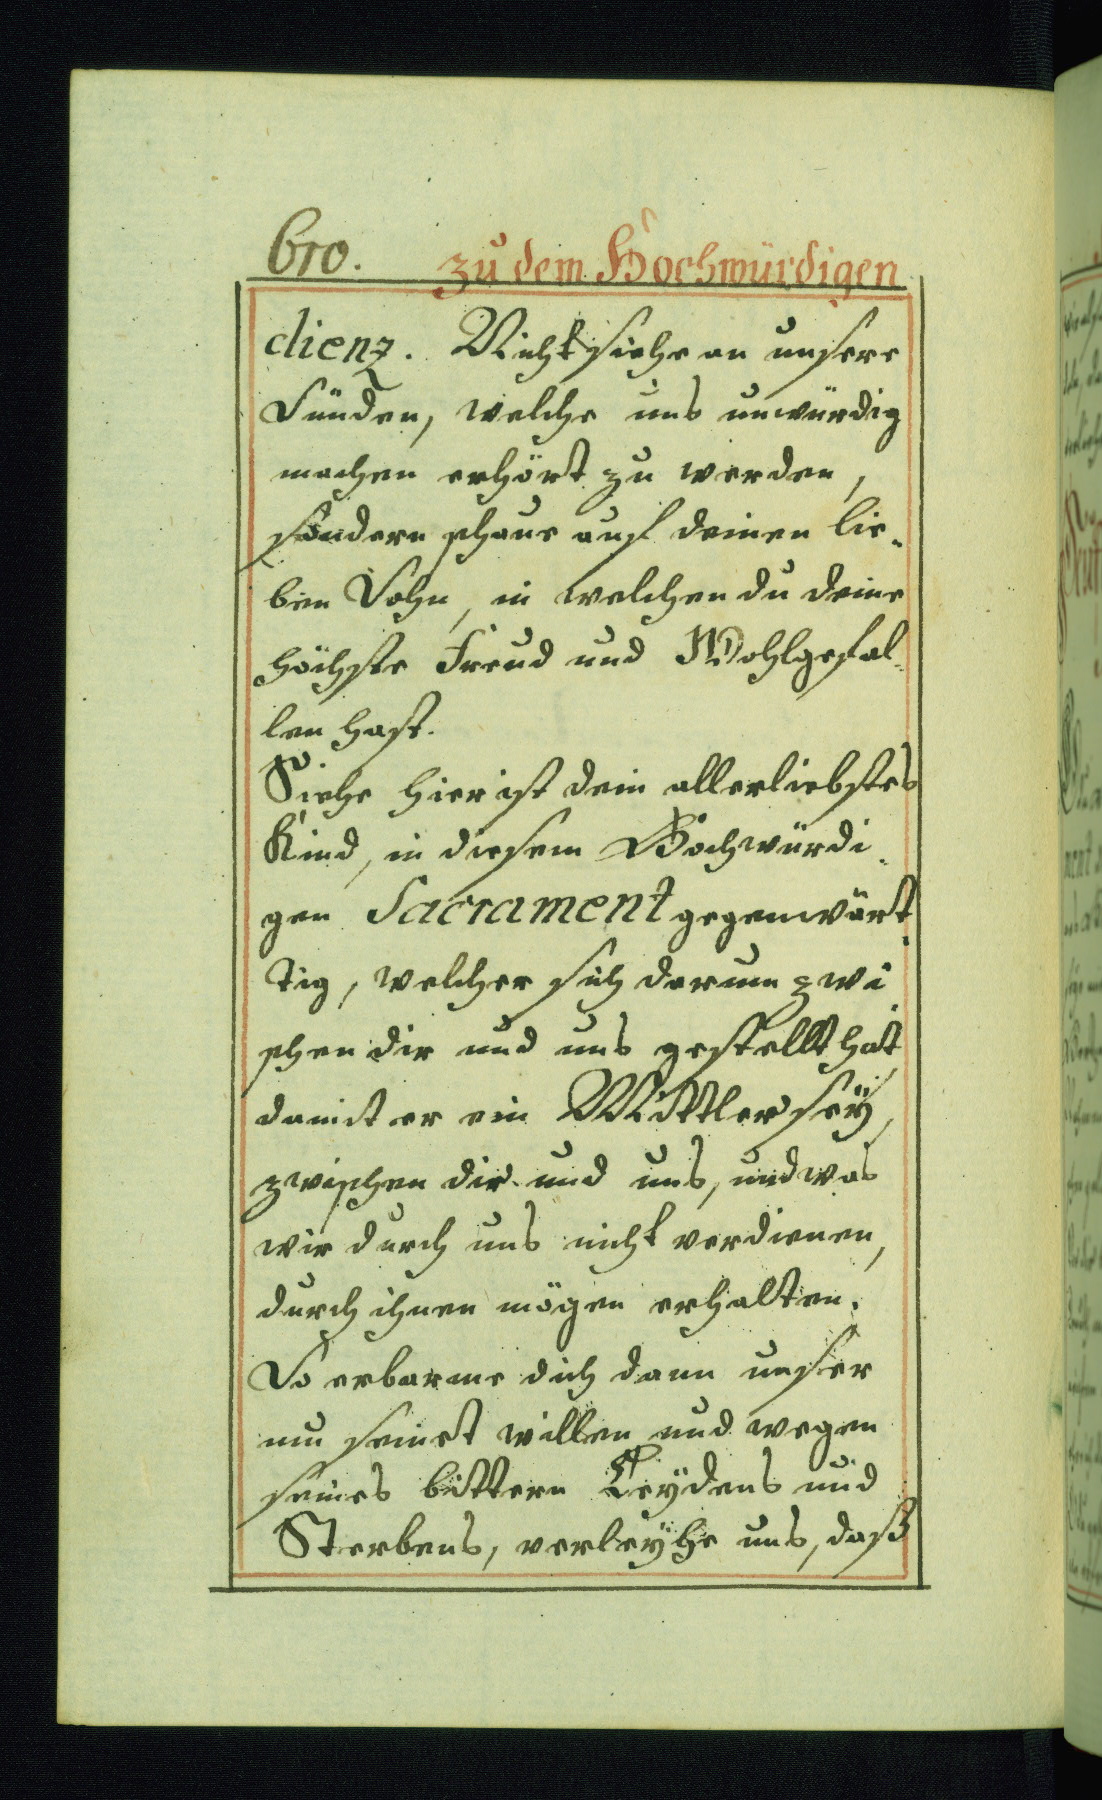 610. zu dem Hochwürdigen
dienz. Nicht siehe an unsere
Sünden, welche uns unwürdig
machen erhört zu werden,
sondern schaue auf deinen lie-
ben Sohn, in welchen du deine
höchste Freud und Wohlgefal-
len hast.
Siehe hier ist dein allerliebstes
Kind, in diesem Hochwürdi-
gen Sacrament gegenwärt-
tig, welcher sich darum zwi-
schen dir und uns gestellt hat
damit er ein Mittler seÿ,
zwischen dir und uns, und was
wir durch uns nicht verdienen,
durch ihnen mögen erhalten.
So erbarme dich dann unser
um seinet willen und wegen
seines bittern Leÿdens und
Sterbens, verleÿhe uns, daß